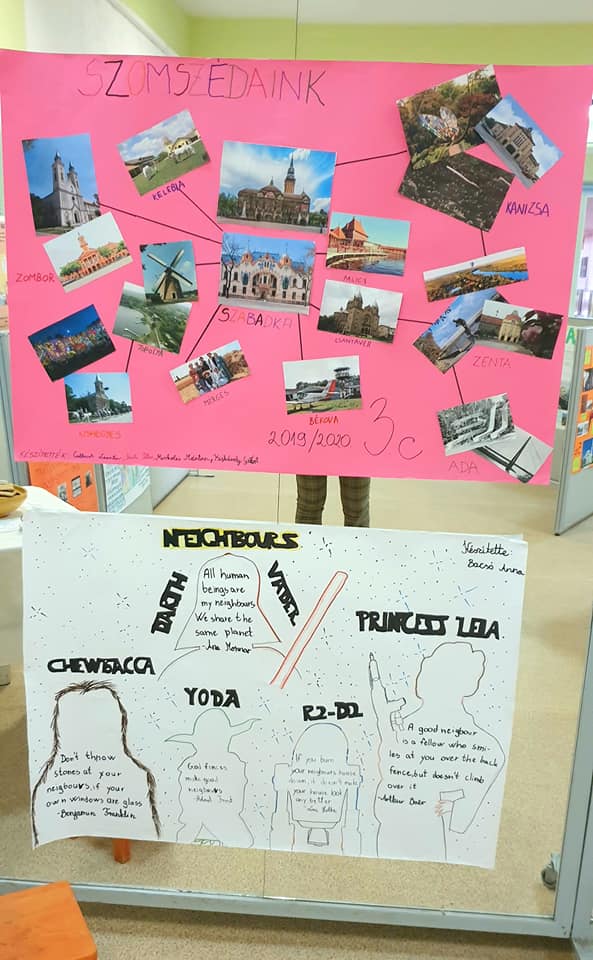 SZOMSZÉDAINK
KELEBIA
KANIZSA
ZOMBOR
PALICS
SZABADKA
CSANTAVÉR
TOPOLYA
ZENTA
MERGES
BÉKOVA
KISHEGYES
2019/2020 3c
ADA
KÉSZÍTETTÉK:
NEIGHBOURS
Készítette:
Bacsó Anna
DARTH
VADER
All human
beings are
my neighbours.
We share the
same planet
PRINCESS LEIA
CHEWBACCA
YODA
R2-D2
Don't throw
stones at your
neigbours, if your
own windows are glass
-Benjamin Franklin
Good fences
make good
neighbors
If you burn
your neighbours house
down, it doesn't make
your house look
any better
A good neigbour
is a fellow who smi-
les at you over the back
fence, but doesn't climb
over it
-Arthur Baer